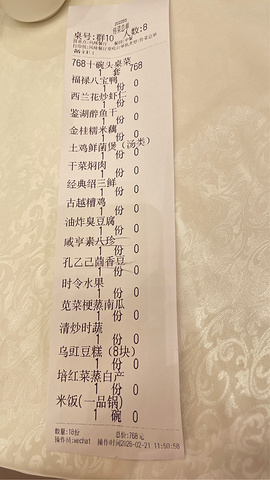 桌号:群10 人数:8
768十碗头桌菜
1 套 768
福禄八宝鸭
1 份 0
西兰花炒虾仁
1 份 0
鉴湖醉鱼干
1 份 0
金桂糯米藕
1 份 0
土鸡鲜菌煲(汤类)
1 份 0
干菜焖肉
1 份 0
经典绍三鲜
1 份 0
古越糟鸡
1 份 0
油炸臭豆腐
1 份 0
咸亨素八珍
1 份 0
孔乙己茴香豆
1 份 0
时令水果
1 份 0
苋菜梗蒸南瓜
1 份 0
清炒时蔬
1 份 0
乌豇豆糕(8块)
1 份 0
培红菜蒸白产
1 份 0
米饭(一品锅)
1 碗 0
数量:18份 总价:768元
操作员:wechat 操作时间2026-02-21 11:50:58